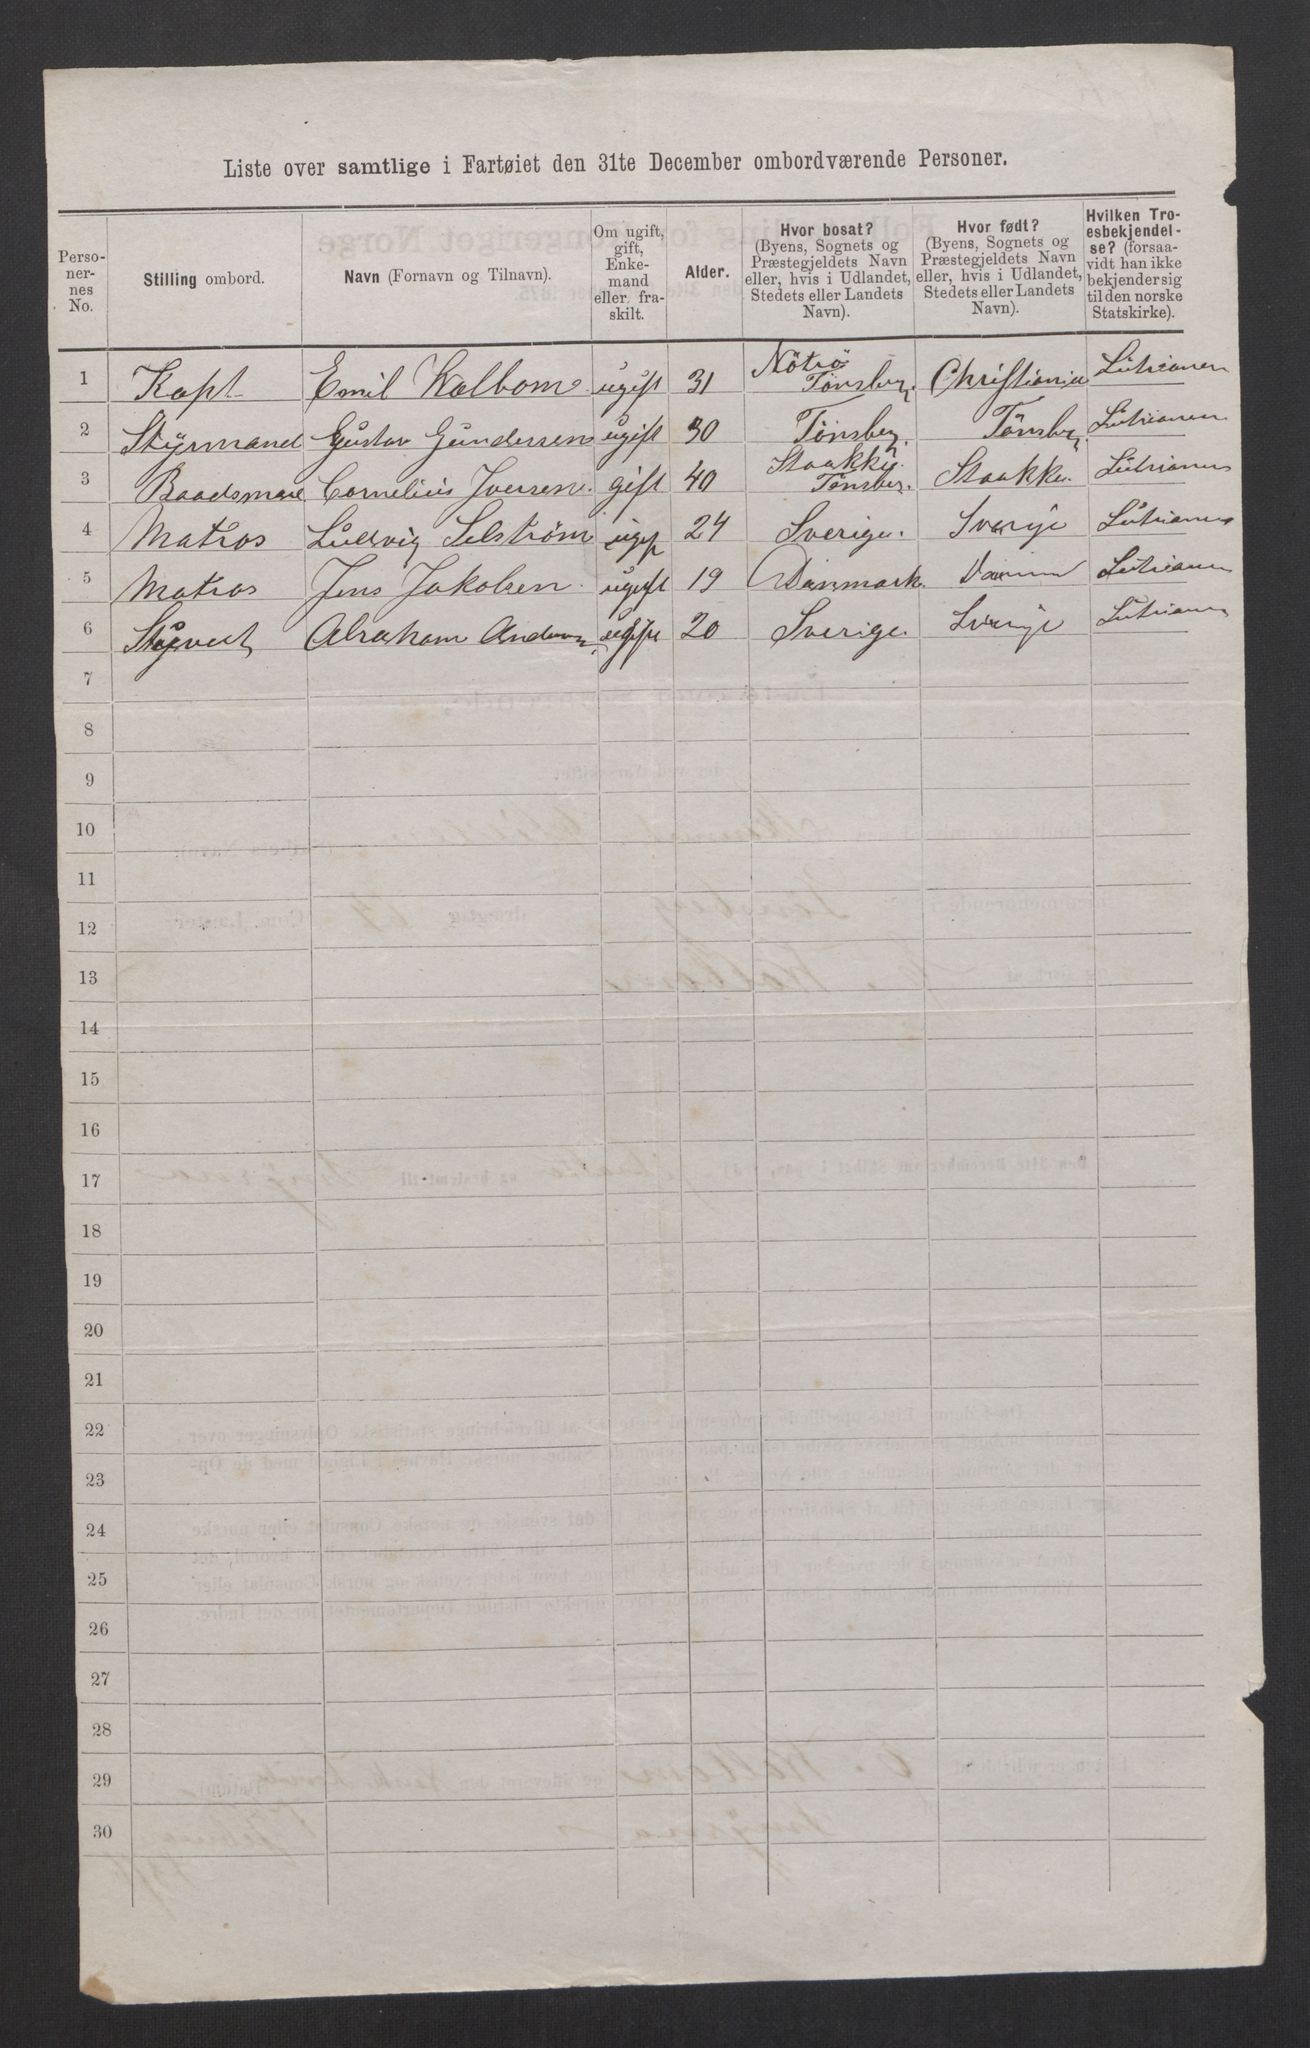 Liste over samtlige i Fartøiet den 31te December ombordværende Personer.
Perso-
ner-
nes
No.
Stilling ombord.
Navn (Fornavn og Tilnavn).
Om ugift,
gift,
Enke-
mand
eller fra-
skilt.
Alder.
Hvor bosat?
(Byens, Sognets og
Præstegjeldets Navn
eller, hvis i Udlandet,
Stedets eller Landets
Navn).
Hvor født?
(Byens, Sognets og
Præstegjeldets Navn
eller, hvis i Udlandet,
Stedets eller Landets
Navn).
Hvilken Tro-
esbekjendel-
se? (forsaa-
vidt han ikke
bekjender sig
til den norske
Statskirke).
1 Kapt Emil Walbom ugift 31 Nötrö Tönsberg. Christiania Lutrianer
2 Styrmand Gustav Gundersen ugift 30 Tönsberg. Tönsberg Lutrianer
3 Baadsman Cornelius Iversen. gift 40 Staakky. Tönsber. Staakke. Lutrianer
4 Matros Ludvig Selström ugift 24 Sverige. Sverije Lutrianer
5 Matros Jens Jakobsen ugift 19 Danmark. Lutrianer
6 Abraham ugift 20 Sverige. Sverije Lutrianer
7
8
9
10
11
12
13
14
15
16
17
18
19
20
21
22
23
24
25
26
27
28
29
30